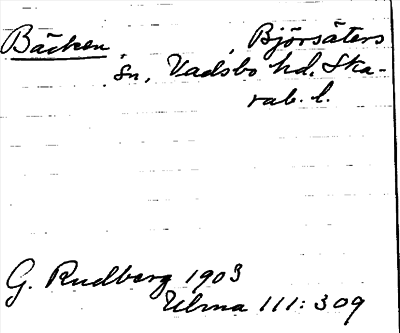 Bäcken, Björsäters
sn, Vadsbo hd, Ska-
rab. l.
G. Rudberg 1903
Ulma 111:309